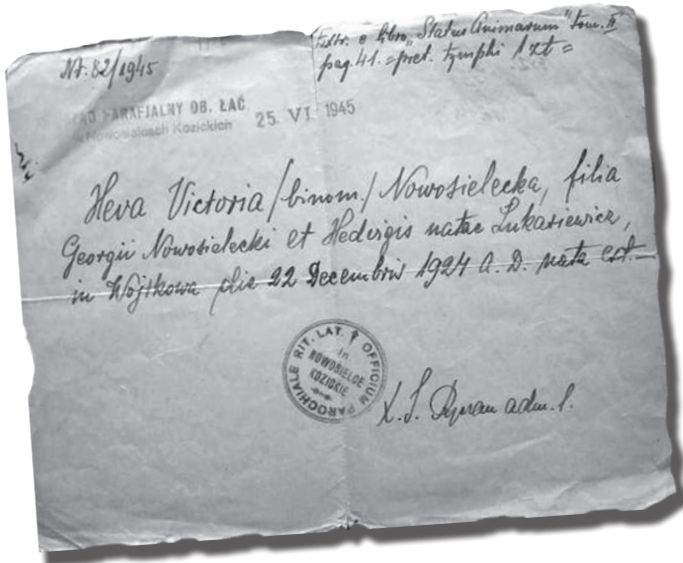 Nr. 82/1945
Extr. e libro „Status Animarum" tom. II
pag. 41. = pret. tymphi 1 zt =
RZĄD PARAFJALNY OB. ŁAC.
w Nowosielcach Kozickich
25. VI 1945
Heva Victoria /binom./ Nowosielecka, filia
Georgii Nowosielecki et Hedvigis natae Lukasiewicz,
in Wojtkowa die 22 Decembris 1924 A. D. nata est.
OFFICIUM PAROCHIALE RIT. LAT.
in
NOWOSIELCE
KOZICKIE
X. J. adm. p.